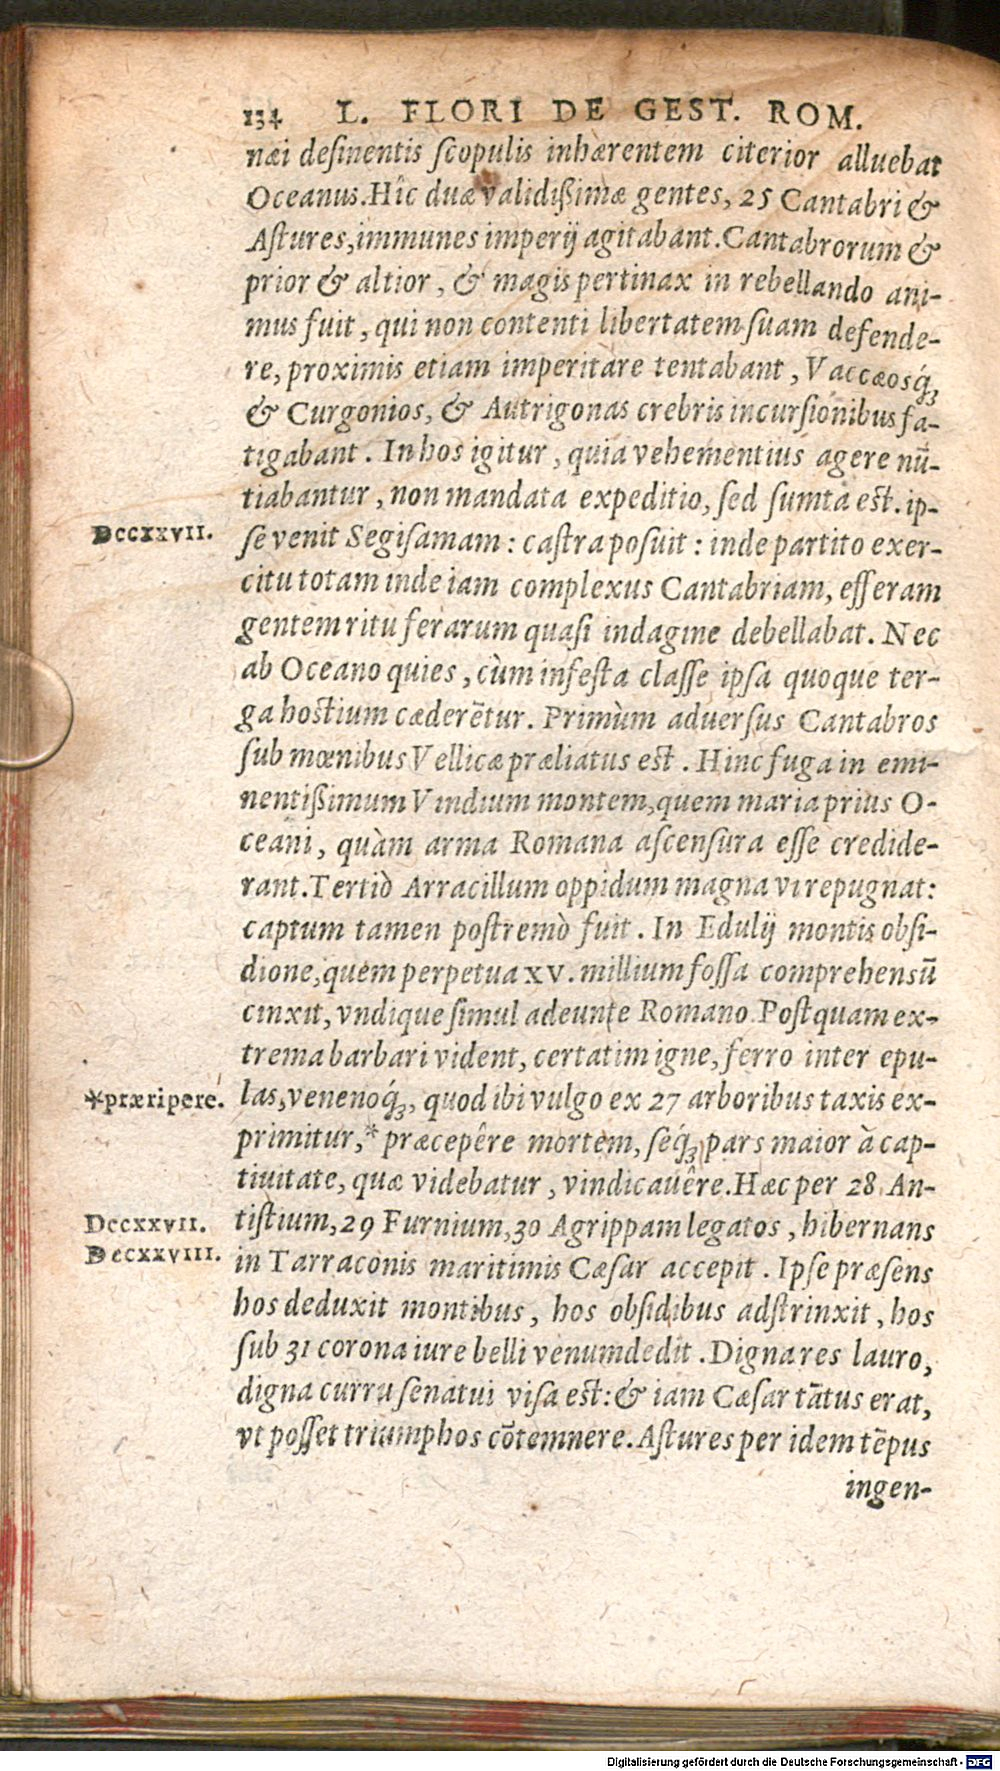 134 L. FLORI DE GEST. ROM.
næi desinentis scopulis inhærentem citerior alluebat
Oceanus. Hîc duæ validißimæ gentes, 25 Cantabri &
Astures, immunes imperij agitabant. Cantabrorum &
prior & altior, & magis pertinax in rebellando ani-
mus fuit, qui non contenti libertatem suam defende-
re, proximis etiam imperitare tentabant, Vaccæosq́;
& Curgonios, & Autrigonas crebris incursionibus fa-
tigabant. In hos igitur, quia vehementius agere nū-
tiabantur, non mandata expeditio, sed sumta est. ip-
Dccxxvii.
se venit Segisamam: castra posuit: inde partito exer-
citu totam inde iam complexus Cantabriam, efferam
gentem ritu ferarum quasi indagine debellabat. Nec
ab Oceano quies, cùm infesta classe ipsa quoque ter-
ga hostium cæderētur. Primùm aduersus Cantabros
sub mœnibus Vellicæ præliatus est. Hinc fuga in emi-
nentißimum Vindium montem, quem maria prius O-
ceani, quàm arma Romana ascensura esse credide-
rant. Tertiò Arracillum oppidum magna vi repugnat:
captum tamen postremò fuit. In Edulij montis obsi-
dione, quem perpetua xv. millium fossa comprehensū
cinxit, vndique simul adeunte Romano. Postquam ex-
trema barbari vident, certatim igne, ferro inter epu-
*præripere.
las, venenoq́;, quod ibi vulgo ex 27 arboribus taxis ex-
primitur,* præcepêre mortem, seq́; pars maior à cap-
tiuitate, quæ videbatur, vindicauêre. Hæc per 28 An-
Dccxxvii.
tistium, 29 Furnium, 30 Agrippam legatos, hibernans
Dccxxviii.
in Tarraconis maritimis Cæsar accepit. Ipse præsens
hos deduxit montibus, hos obsidibus adstrinxit, hos
sub 31 corona iure belli venumdedit. Digna res lauro,
digna curru senatui visa est: & iam Cæsar tātus erat,
vt posset triumphos cōtemnere. Astures per idem tēpus
ingen-
Digitalisierung gefördert durch die Deutsche Forschungsgemeinschaft - DFG